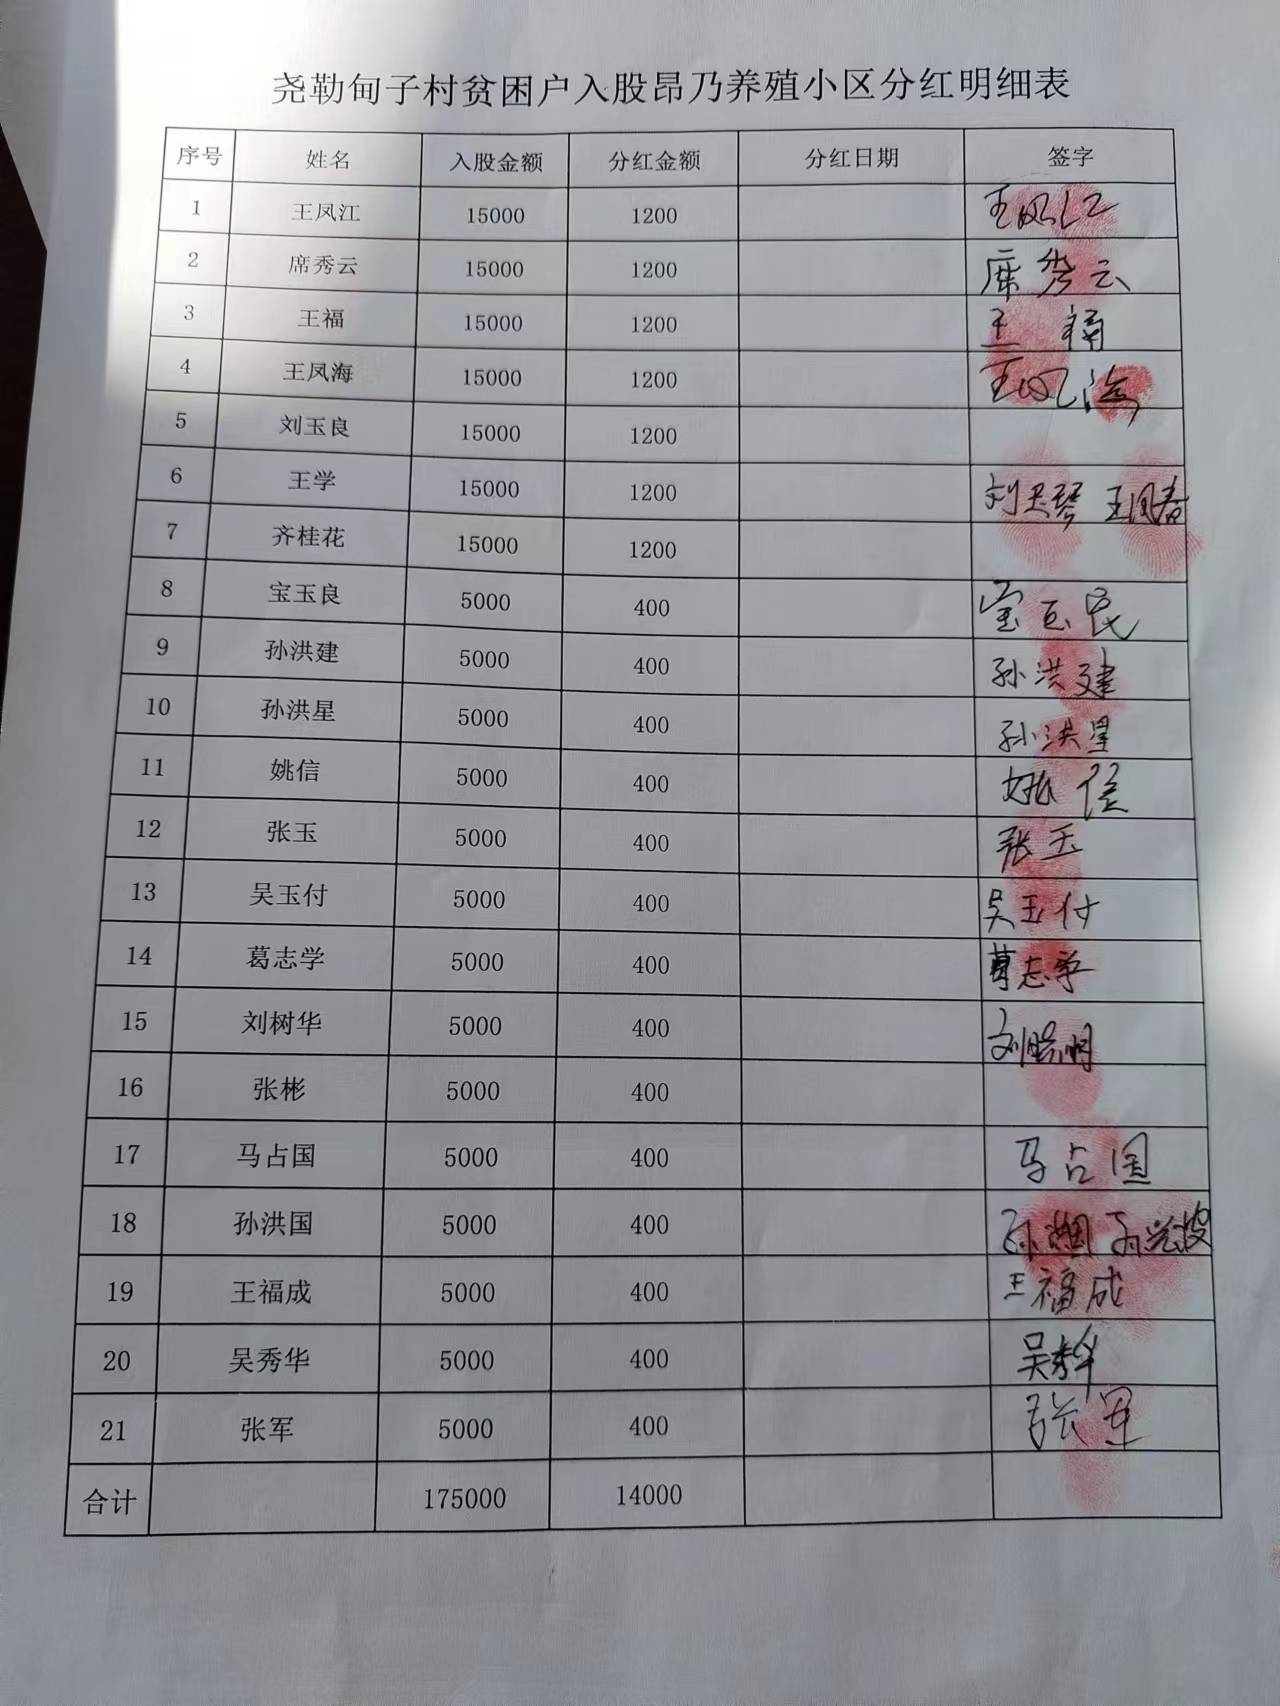 尧勒甸子村贫困户入股昂乃养殖小区分红明细表
序号 姓名 入股金额 分红金额 分红日期 签字
1 王凤江 15000 1200 王凤江
2 席秀云 15000 1200 席秀云
3 王福 15000 1200 王福
4 王凤海 15000 1200 王凤海
5 刘玉良 15000 1200
6 王学 15000 1200 刘玉琴
7 齐桂花 15000 1200
8 宝玉良 5000 400 宝玉良
9 孙洪建 5000 400 孙洪建
10 孙洪星 5000 400 孙洪星
11 姚信 5000 400 姚信
12 张玉 5000 400 张玉
13 吴玉付 5000 400 吴玉付
14 葛志学 5000 400 葛志学
15 刘树华 5000 400 刘晓明
16 张彬 5000 400
17 马占国 5000 400 马占国
18 孙洪国 5000 400 孙洪国
19 王福成 5000 400 王福成
20 吴秀华 5000 400 吴秀华
21 张军 5000 400 张军
合计 175000 14000